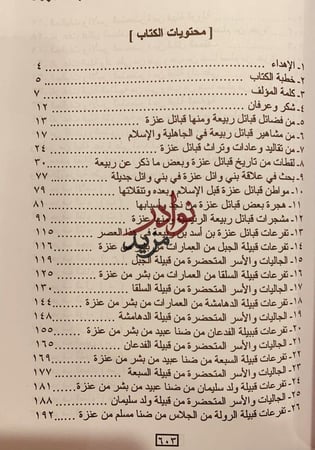 [ محتويات الكتاب ]
١- الإهداء ٤
٢- خطبة الكتاب ٥
٣- كلمة المؤلف ٧
٤- شكر وعرفان ١٢
٥- من فضائل قبائل ربيعة ومنها قبائل عنزة ١٣
٦- من مشاهير قبائل ربيعة في الجاهلية والإسلام ١٧
٧- من تقاليد وعادات وتراث قبائل عنزة ٢٤
٨- لقطات من تاريخ قبائل عنزة وبعض ما ذكر عن ربيعة ٣٠
٩- بحث في علاقة بني وائل عنزة في بني وائل جديلة ٧٧
١٠- مواطن قبائل عنزة قبل الإسلام وبعده وتنقلاتها ٧٩
١١- هجرة بعض قبائل عنزة من نجد وأسبابها ٨١
١٢- مشجرات قبائل ربيعة ٩١
١٣- تفرعات قبائل عنزة بن أسد بن ربيعة العصر ١١٥
١٤- تفرعات قبيلة الجبل من العمارات من بشر من عنزة ١١٦
١٥- الجاليات والأسر المتحضرة من قبيلة الجبل ١١٩
١٦- تفرعات قبيلة السلقا من العمارات من بشر من عنزة ١٢٥
١٧- الجاليات والأسر المتحضرة من قبيلة السلقا ١٣٠
١٨- تفرعات قبيلة الدهامشة من العمارات من بشر من عنزة ١٤٤
١٩- الجاليات والأسر المتحضرة من قبيلة الدهامشة ١٤٨
٢٠- تفرعات قبيلة الفدعان من ضنا عبيد من بشر من عنزة ١٥٥
٢١- الجاليات والأسر المتحضرة من قبيلة الفدعان ١٦٥
٢٢- تفرعات قبيلة السبعة من ضنا عبيد من بشر من عنزة ١٦٩
٢٣- الجاليات والأسر المتحضرة من قبيلة السبعة ١٧٧
٢٤- تفرعات قبيلة ولد سليمان من ضنا عبيد من بشر من عنزة ١٨١
٢٥- الجاليات والأسر المتحضرة من قبيلة ولد سليمان ١٨٨
٢٦- تفرعات قبيلة الرولة من الجلاس من ضنا مسلم من عنزة ١٩٢
٦٠٣
نوادر
مزيد